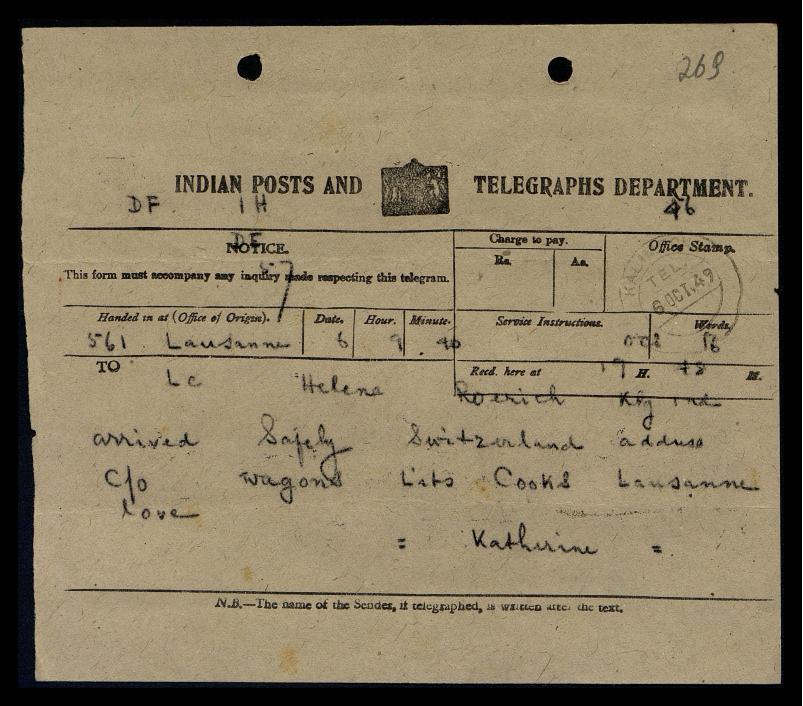 269
INDIAN POSTS AND TELEGRAPHS DEPARTMENT.
DF 1 H 46
NOTICE. DF
This form must accompany any inquiry made respecting this telegram.
57
Charge to pay.
Rs. As.
Office Stamp.
TEL
6 OCT. 49
Handed in at (Office of Origin). Date. Hour. Minute. Service Instructions. Words.
561 Lausanne 6 9 40 16
TO
Recd. here at 19 H. 48 M.
Lc Helena Roerich Kpg ind
arrived Safely Switzerland address
C/o wagons Lits Cooks Lausanne
love
= Katherine =
N.B.—The name of the Sender, if telegraphed, is written after the text.